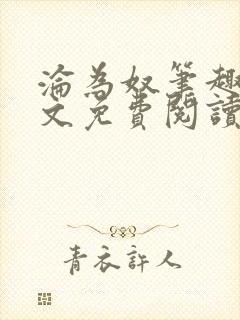 淪為奴筆趣
文免費閱讀
青衣許人